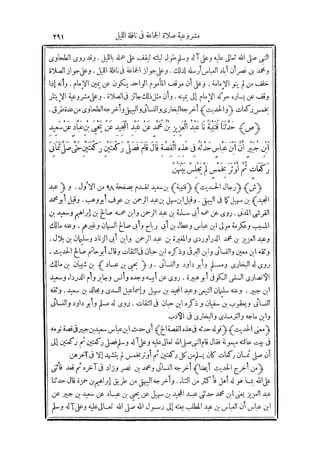 مشروعية صلاة الجماعة فى نافلة الليل ٢٩١
النبي صلى الله تعالى عليه وعلى آله وسلم طول ليلته ليقف على عمله بالليل . وقد روى الطحاوى
ومحمد بن نصر أن أباه العباس أرسله لذلك . وعلى جواز الجماعة فى نافلة الليل . وعلى جواز الصلاة
خلف من لم ينو الإمامة . وعلى أن موقف المأموم الواحد يكون عن يمين الإمام . وأنه إذا
وقف عن يساره حوّله الإمام إلى يمينه . وأن مثل ذلك جائز فى الصلاة . وعلى مشروعية الإيتار
بخمس ركعات ﴿والحديث﴾ أخرجه البخارى والنسائى والبيهقى وأخرجه الطحاوى من عدة طرق .
﴿ص﴾ حَدَّثَنَا قُتَيْبَةُ نَا عَبْدُ الْعَزِيزِ بْنُ مُحَمَّدٍ عَنْ عَبْدِ الْمَجِيدِ عَنْ يَحْيَى بْنِ عَبَّادٍ عَنْ سَعِيدِ
ابْنِ جُبَيْرٍ أَنَّ ابْنَ عَبَّاسٍ حَدَّثَهُ فِى هٰذِهِ الْقِصَّةِ قَالَ قَامَ فَصَلَّى رَكْعَتَيْنِ رَكْعَتَيْنِ حَتَّى صَلَّى ثَمَانِىَ
رَكَعَاتٍ ثُمَّ أَوْتَرَ بِخَمْسٍ لَمْ يَجْلِسْ بَيْنَهُنَّ
﴿ش﴾ ﴿رجال الحديث﴾ ﴿قتيبة﴾ بن سعيد تقدم صفحة ٩٨ من الأول . و ﴿عبد
المجيد﴾ بن سهيل كما فى البيهقى . وقيل ابن سهيل بن عبد الرحمن بن عوف أبو وهب . وقيل أبو محمد
القرشى المدنى . روى عن عمه أبى سلمة بن عبد الرحمن وابن عمه صالح بن إبراهيم وسعيد بن
المسيب وعكرمة مولى ابن عباس وعطاء بن أبى رباح وأبى صالح السمان وغيرهم . وعنه مالك
وعبد العزيز بن محمد الدراوردى والمغيرة بن عبد الرحمن وابن أبى الزناد وسليمان بن بلال .
وثقه ابن معين والنسائى وابن البرقى وذكره ابن حبان فى الثقات وقال أبو حاتم صالح الحديث .
روى له البخارى ومسلم وأبو داود والنسائى . و ﴿يحيى بن عباد﴾ بن شيبان بن مالك
الأنصارى السلمى الكوفى أبو هبيرة . روى عن أبيه وجده وأنس وجابر وأم الدرداء وسعيد
ابن جبير . وعنه سليمان التيمى وعبد المجيد بن سهيل وإسماعيل السدى ومجالد بن سعيد . وثقه
النسائى ويعقوب بن سفيان وذكره ابن حبان فى الثقات . روى له مسلم وأبو داود والنسائى
وابن ماجه والترمذى والبخارى فى الأدب
﴿معنى الحديث﴾ ﴿قوله حدثه فى هذه القصة الخ﴾ أى حدث ابن عباس سعيد بن جبير فى قصة نومه
فى بيت خالته ميمونة فقال قام النبي صلى الله تعالى عليه وعلى آله وسلم فصلى ركعتين ثم ركعتين إلى
أن صلى ثمان ركعات كان يسلم من كل ركعتين ثم أوتر بخمس لم يتشهد إلا فى آخرهن
﴿من أخرج الحديث أيضا﴾ أخرجه النسائى ومحمد بن نصر وزاد فى آخره ثم قعد فأثنى
على الله بما هو له أهل فأكثر من الثناء . وأخرجه البيهقى من طريق إبراهيم بن حمزة قال حدثنا
عبد العزيز يعنى ابن محمد حدثنى عبد المجيد بن سهيل عن يحيى بن عباد عن سعيد بن جبير عن
ابن عباس أن العباس بن عبد المطلب بعثه إلى رسول الله صلى الله تعالى عليه وعلى آله وسلم